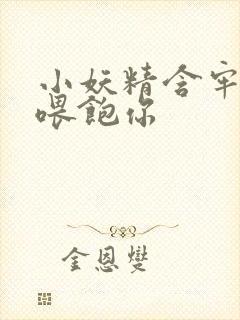 小妖精含牢
喂饱你
金恩燮